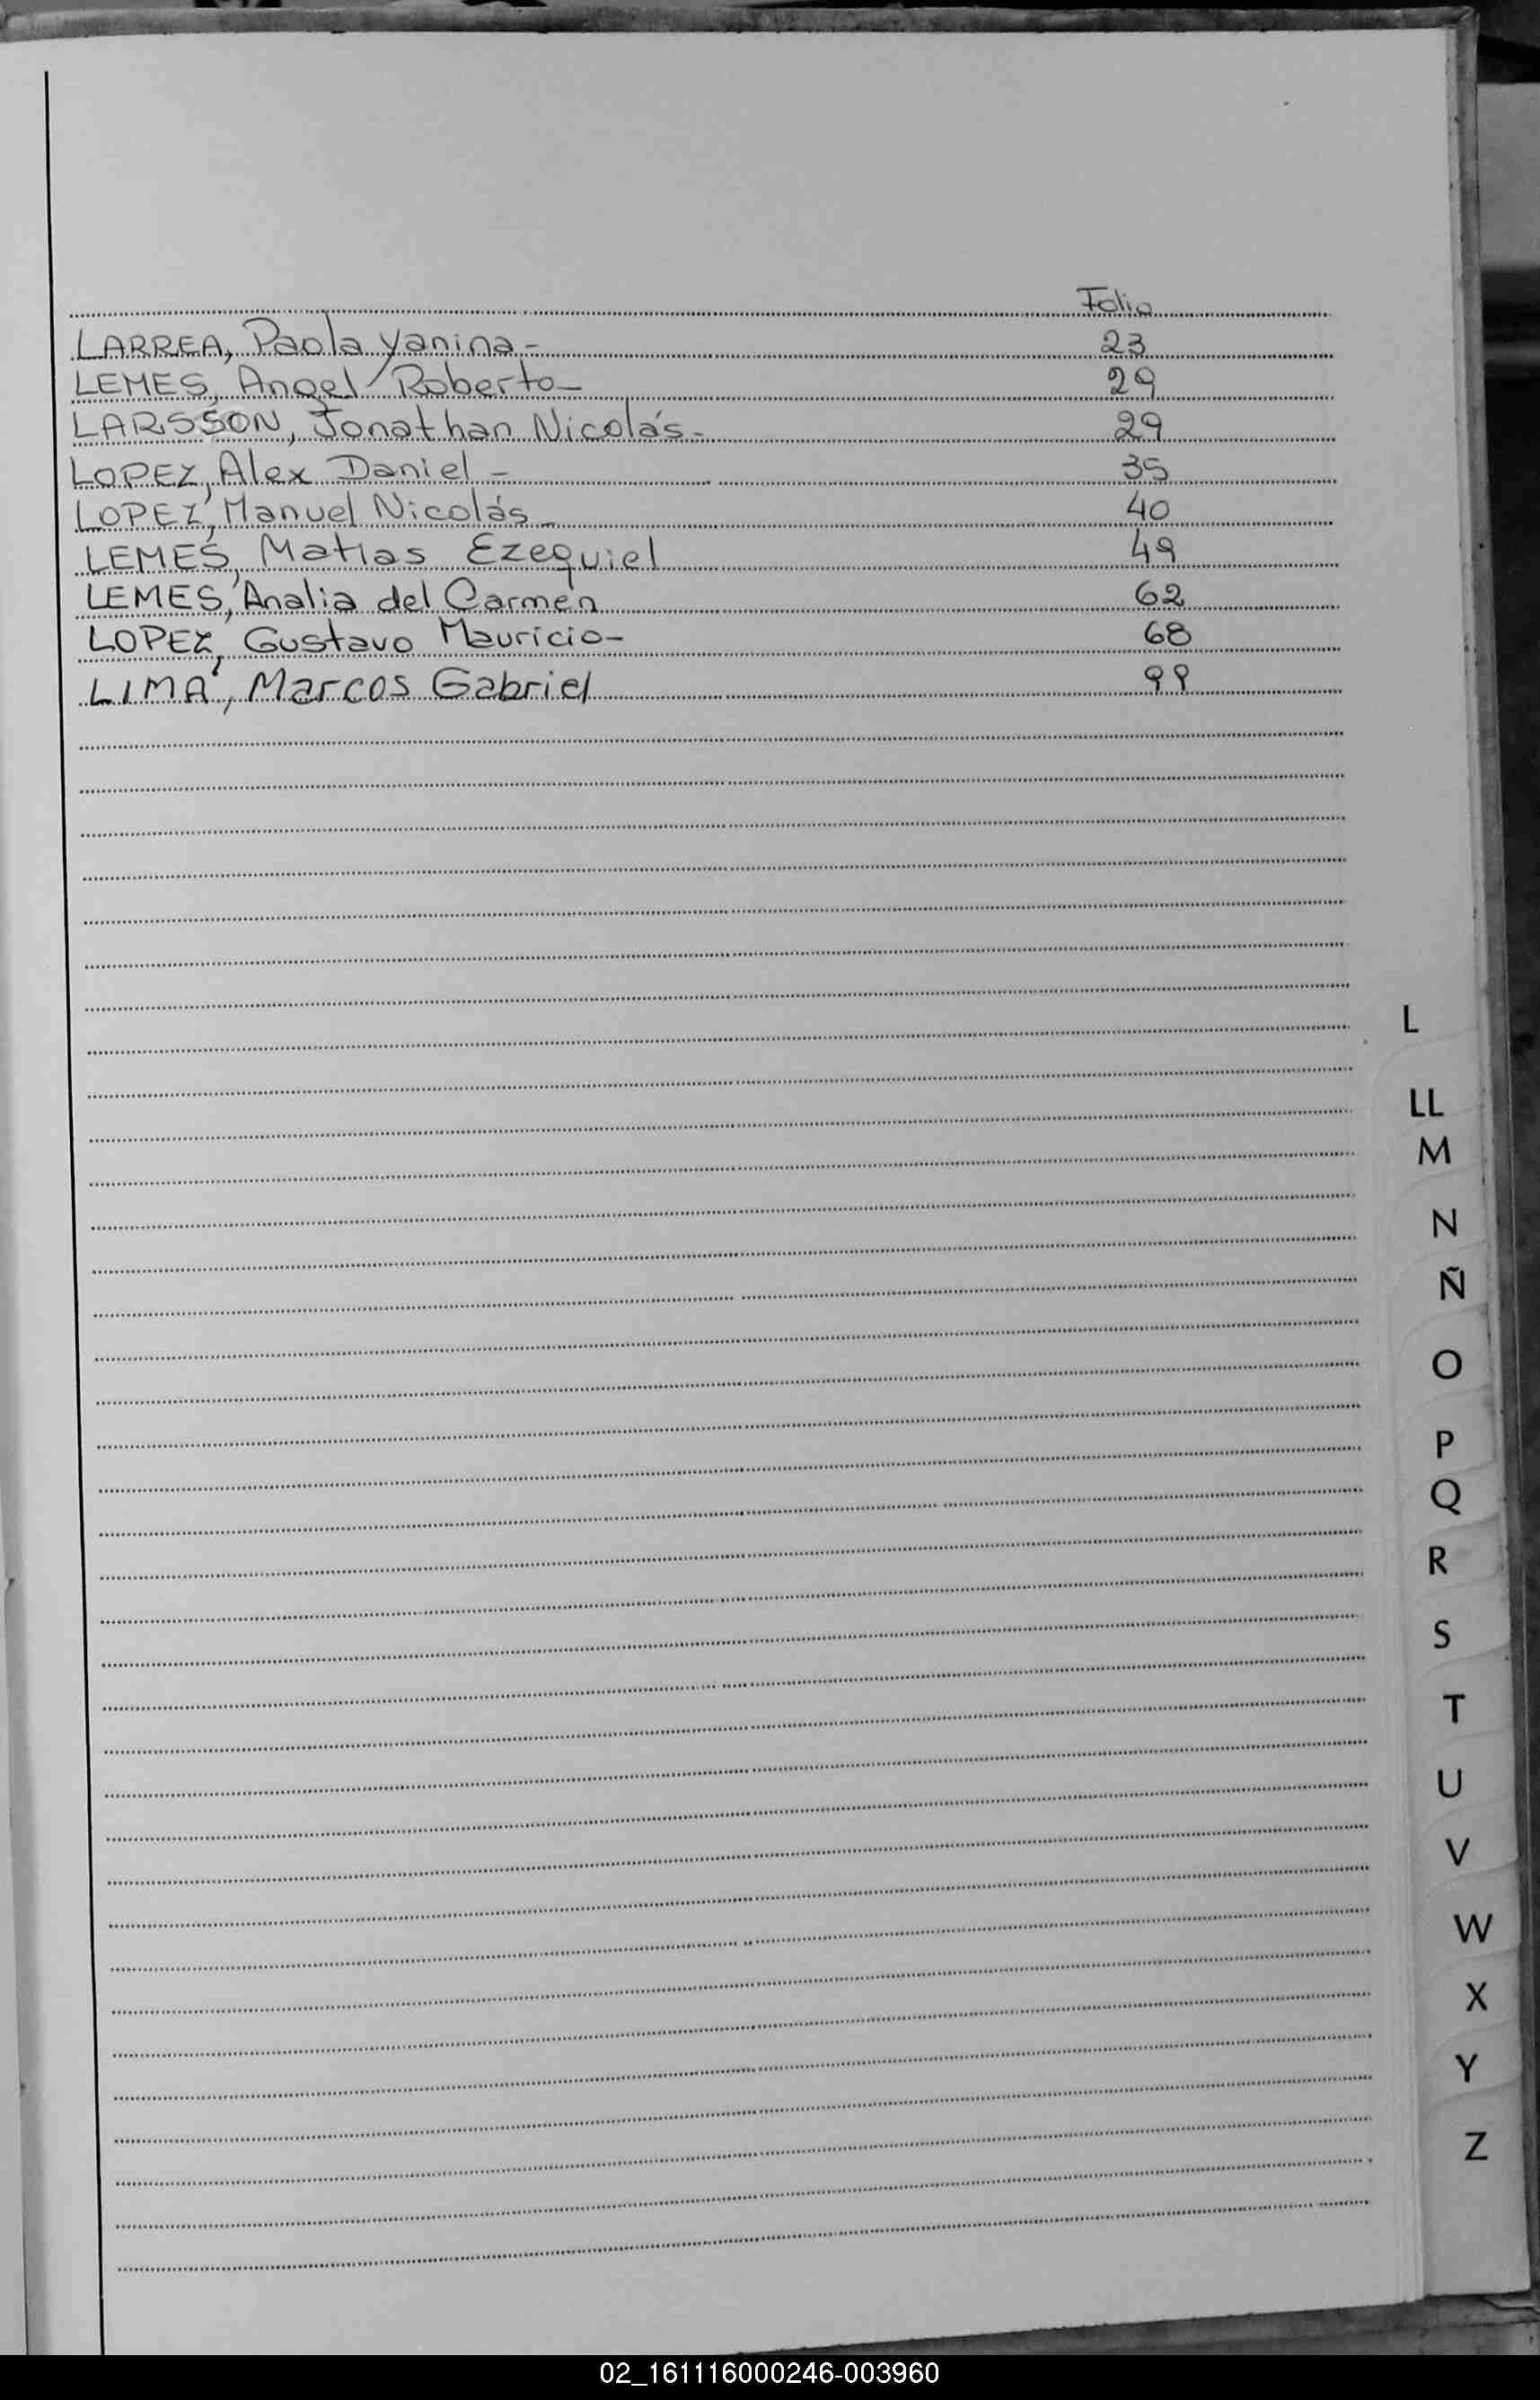 Folio
LARREA, Paola Yanina - 23
LEMES, Angel Roberto - 29
LARSSON, Jonathan Nicolás - 29
LOPEZ, Alex Daniel - 35
LOPEZ, Manuel Nicolás - 40
LEMES, Matias Ezequiel 49
LEMES, Analia del Carmen 62
LOPEZ, Gustavo Mauricio - 68
LIMA, Marcos Gabriel 99
L
LL
M
N
Ñ
O
P
Q
R
S
T
U
V
W
X
Y
Z
02_161116000246-003960